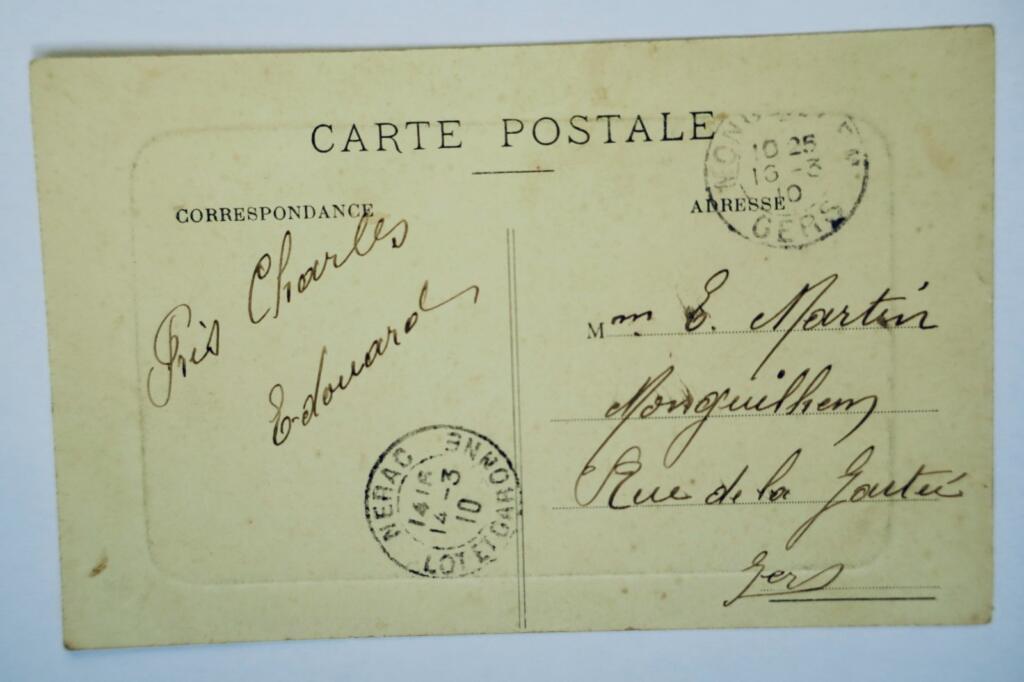 CARTE POSTALE
CORRESPONDANCE
ADRESSE
10 25
16 - 3
10
GERS
Charles
Edouard
Mme E. Martin
Monguilhem
Rue de la
Gers
NERAC
1415
14 - 3
10
LOT ET GARONNE